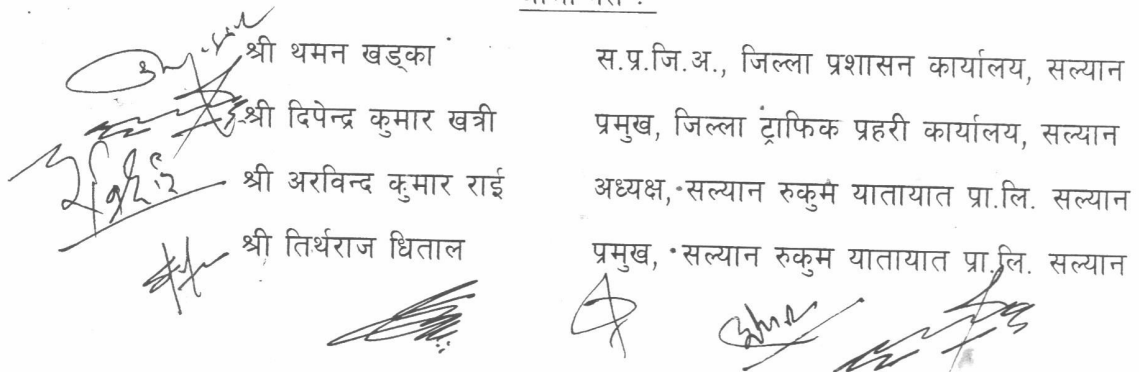 श्री थमन खड्का स.प्र.जि.अ., जिल्ला प्रशासन कार्यालय, सल्यान
श्री दिपेन्द्र कुमार खत्री प्रमुख, जिल्ला ट्राफिक प्रहरी कार्यालय, सल्यान
श्री अरविन्द कुमार राई अध्यक्ष, सल्यान रुकुम यातायात प्रा.लि. सल्यान
श्री तिर्थराज धिताल प्रमुख, सल्यान रुकुम यातायात प्रा.लि. सल्यान